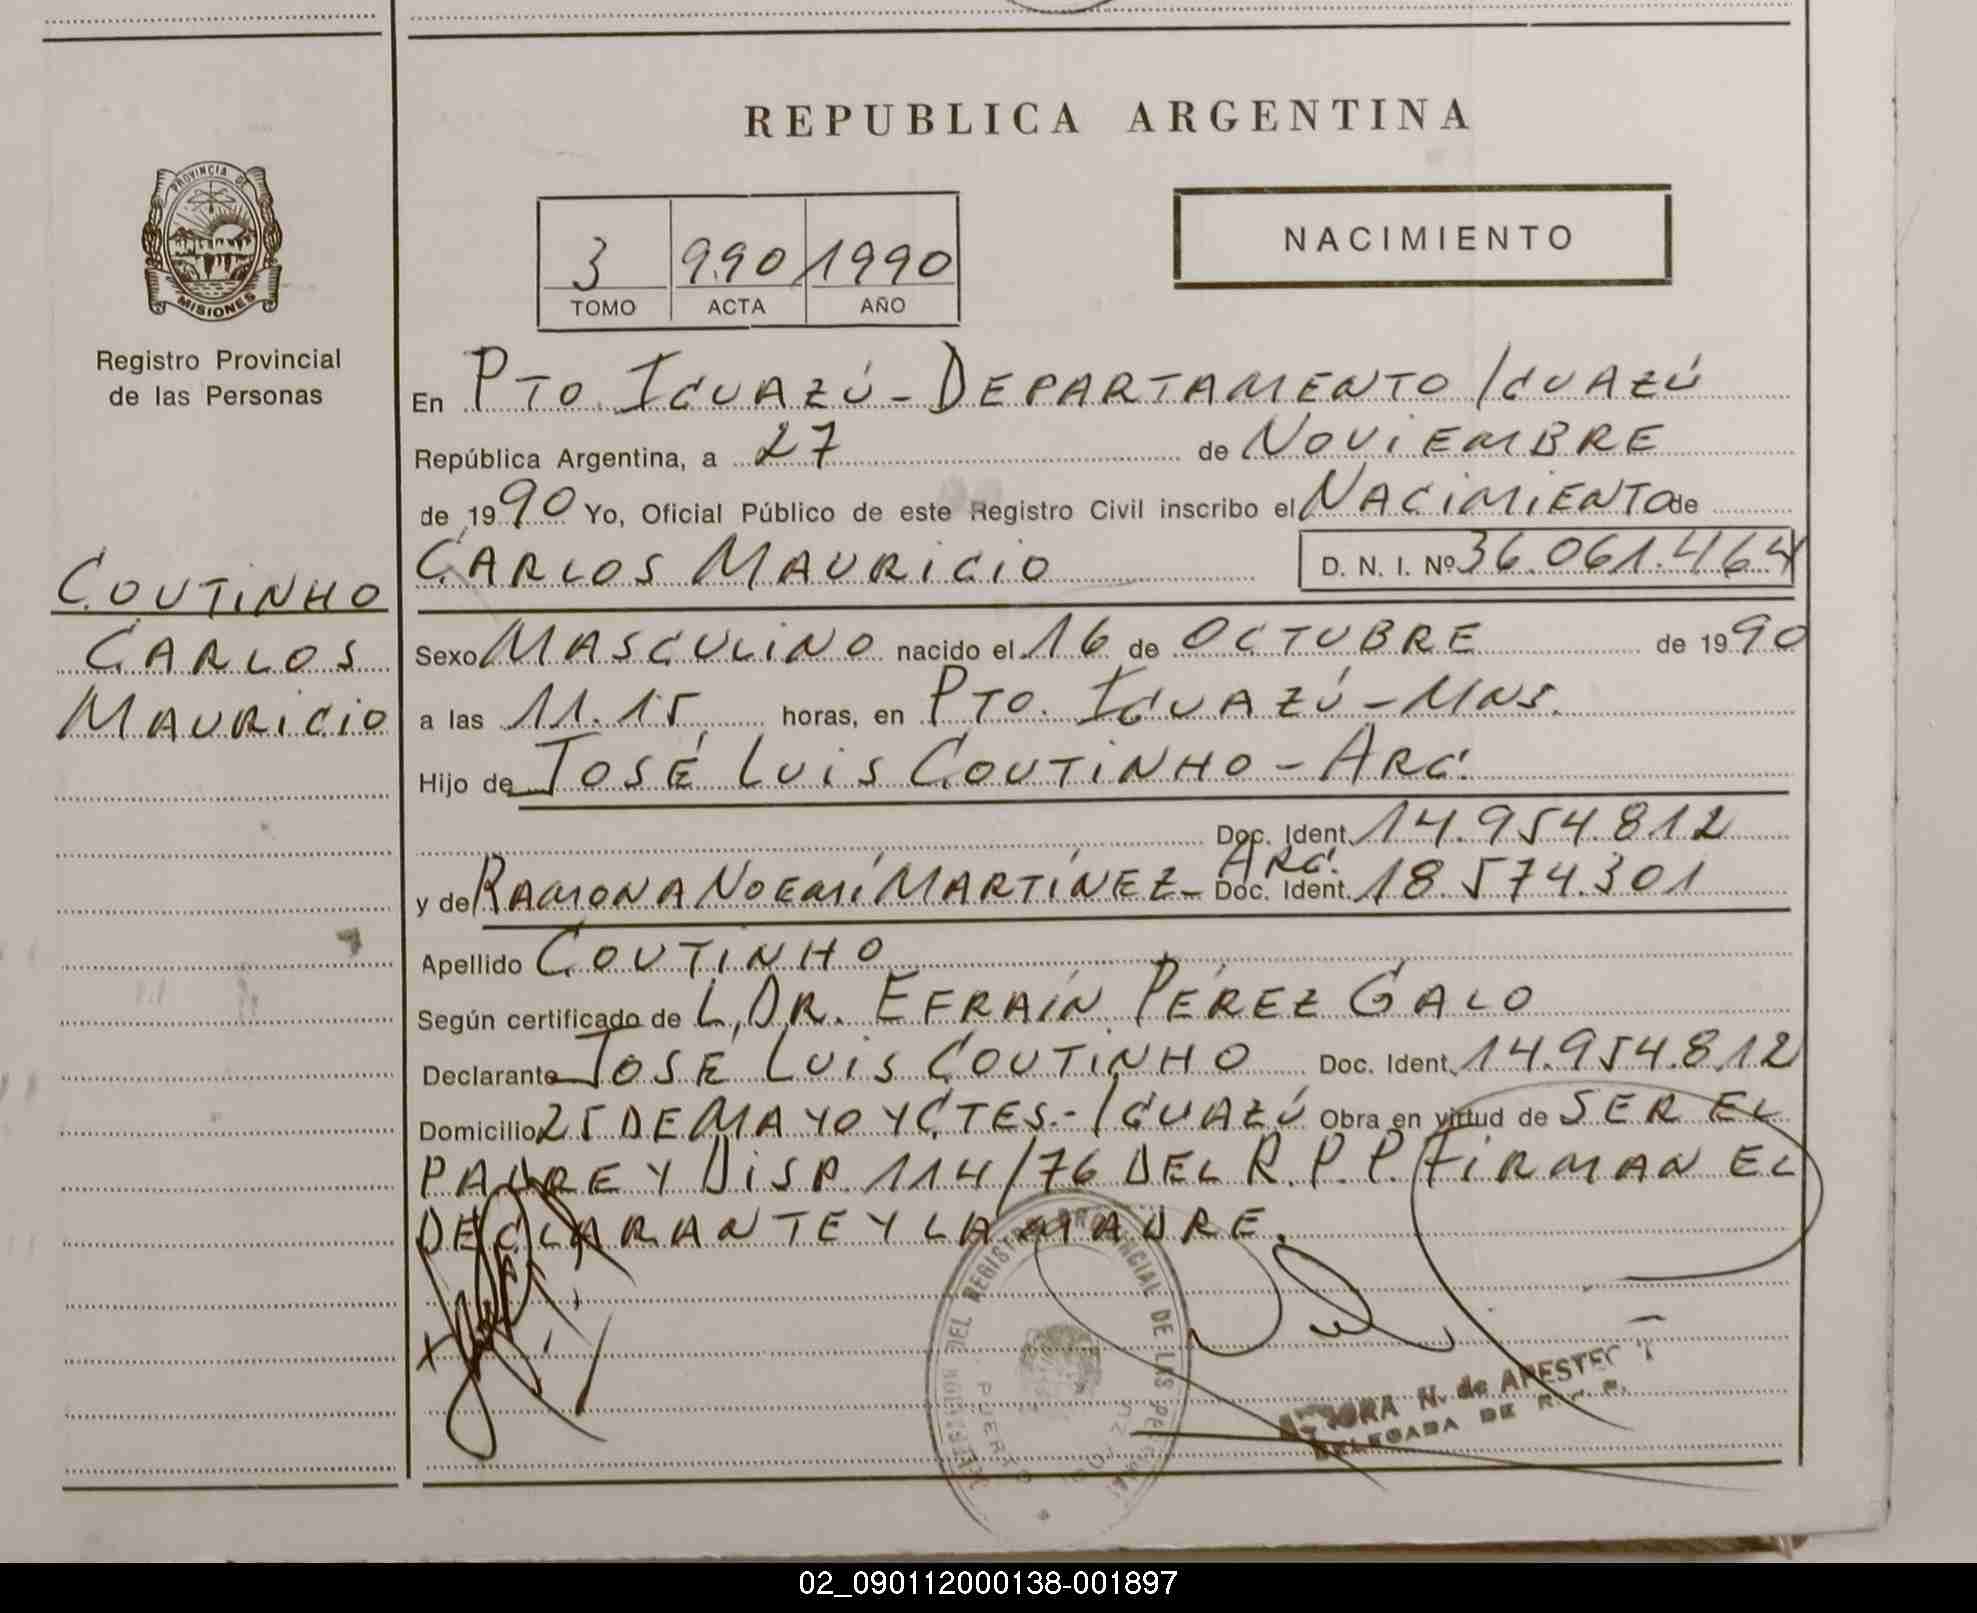 REPUBLICA ARGENTINA
PROVINCIA DE
MISIONES
Registro Provincial
de las Personas
3 990 1990
TOMO ACTA AÑO
NACIMIENTO
En PTO. IGUAZÚ - DEPARTAMENTO IGUAZÚ
República Argentina, a 27 de NOVIEMBRE
de 1990 Yo, Oficial Público de este Registro Civil inscribo el NACIMIENTO de
CARLOS MAURICIO D. N. I. Nº 36.061.464
COUTINHO
CARLOS
MAURICIO
Sexo MASCULINO nacido el 16 de OCTUBRE de 1990
a las 11.15 horas, en PTO. IGUAZÚ - MNS.
Hijo de JOSÉ LUIS COUTINHO - ARG.
Doc. Ident. 14.954.812
y de RAMONA NOEMÍ MARTÍNEZ - ARG. Doc. Ident. 18.574.301
Apellido COUTINHO
Según certificado de L, DR. EFRAÍN PÉREZ GALO
Declarante JOSÉ LUIS COUTINHO Doc. Ident. 14.954.812
Domicilio 25 DE MAYO Y CTES.- IGUAZÚ Obra en virtud de SER EL
PADRE Y DISP. 114/76 DEL R.P.P. FIRMAN EL
DECLARANTE Y LA MADRE.
DEL REGISTRO PROVINCIAL DE LAS
PUERTO
N. de
DELEGADA DE
02_090112000138-001897